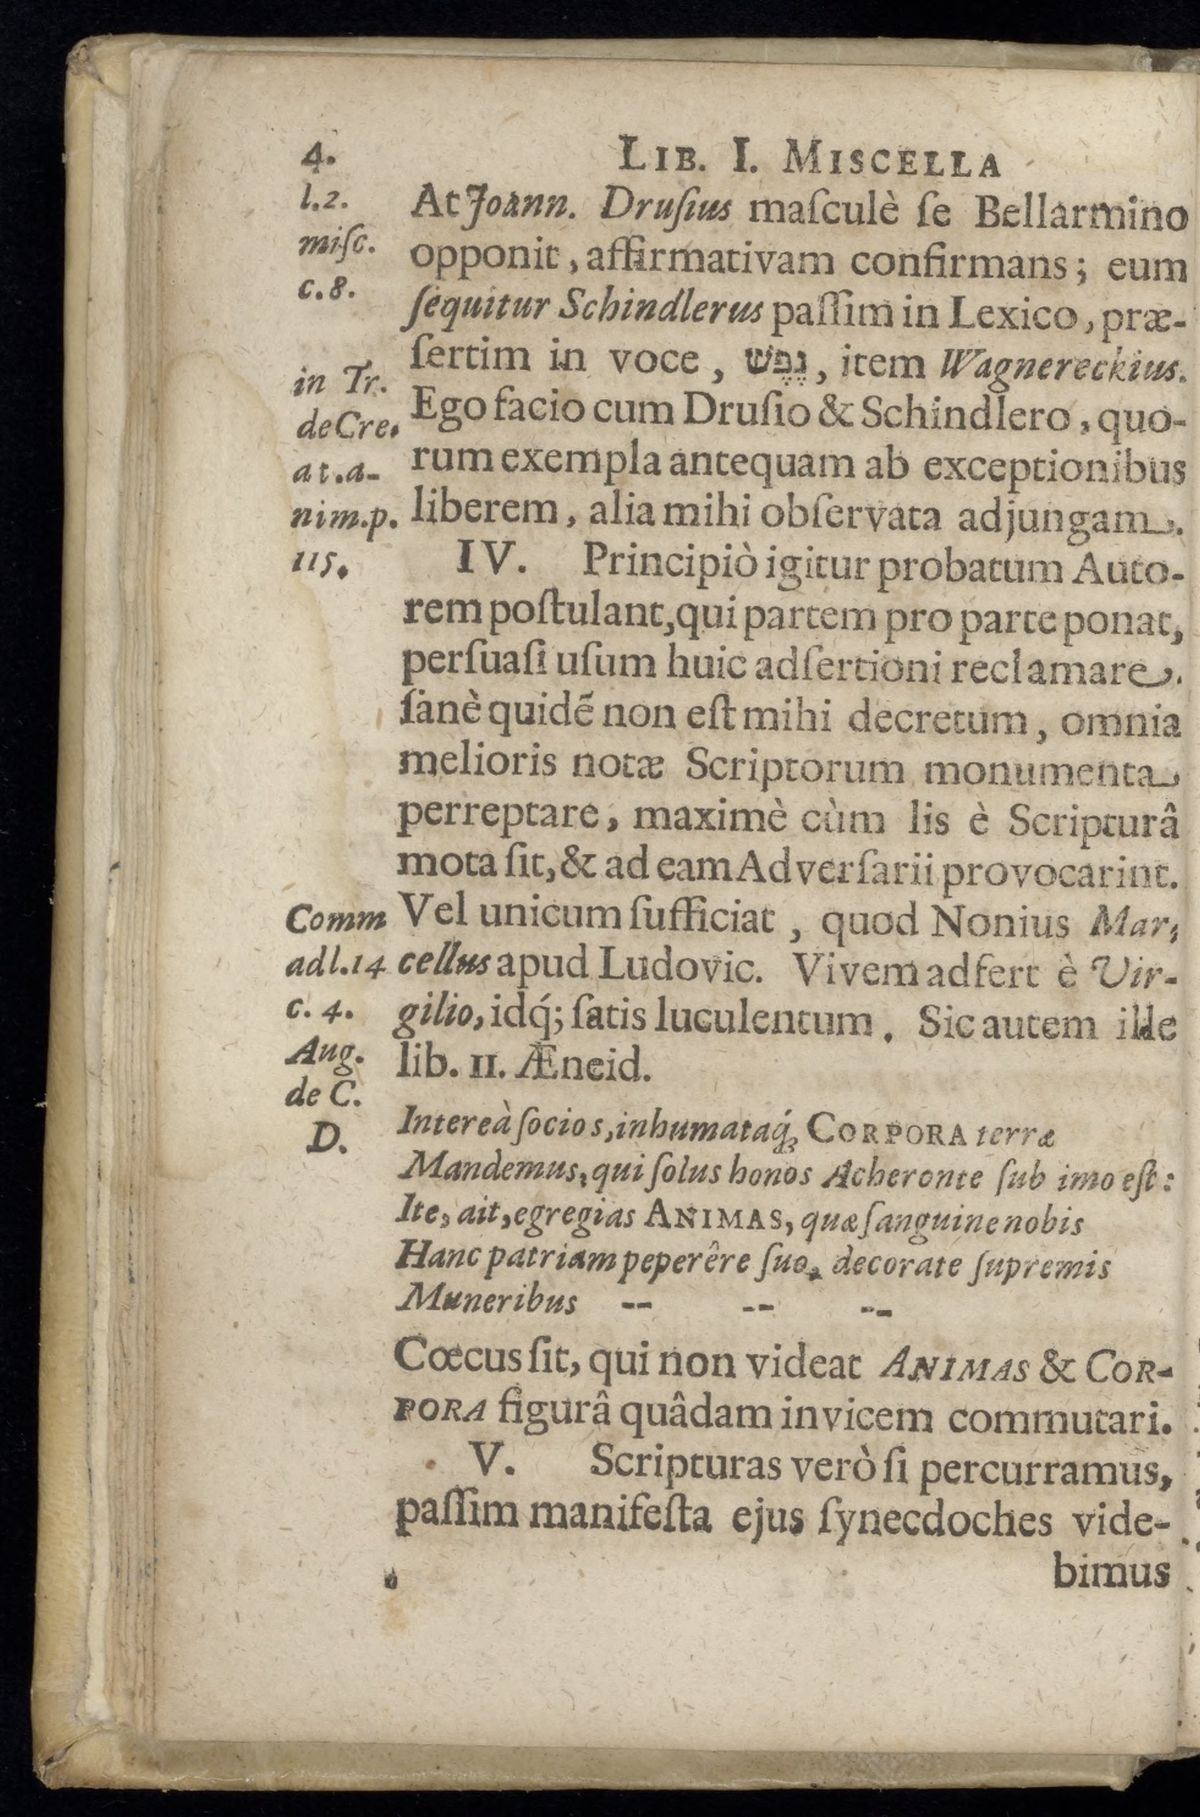 4. LIB. I. MISCELLA
l.2.
miſc.
c.8.
in Tr.
de Cre.
at.a-
nim.p.
115.
At Joann. Druſius maſculè ſe Bellarmino
opponit, affirmativam confirmans; eum
ſequitur Schindlerus paſſim in Lexico, præ-
ſertim in voce, נֶפֶשׁ, item Wagnereckius.
Ego facio cum Druſio & Schindlero, quo-
rum exempla antequam ab exceptionibus
liberem, alia mihi obſervata adjungam.
IV. Principiò igitur probatum Auto-
rem poſtulant, qui partem pro parte ponat,
perſuaſi uſum huic adſertioni reclamare.
ſanè quidẽ non eſt mihi decretum, omnia
melioris notæ Scriptorum monumenta
perreptare, maximè cùm lis è Scripturâ
mota ſit, & ad eam Adverſarii provocarint.
Comm
ad l.14
c. 4.
Aug.
de C.
D.
Vel unicum ſufficiat, quod Nonius Mar-
cellus apud Ludovic. Vivem adfert è Vir-
gilio, idq́; ſatis luculentum. Sic autem ille
lib. 11. Æneid.
Intereà ſocios, inhumataq́; CORPORA terræ
Mandemus, qui ſolus honos Acheronte ſub imo eſt:
Ite, ait, egregias ANIMAS, quæ ſanguine nobis
Hanc patriam peperêre ſuo, decorate ſupremis
Muneribus -- -- --
Cœcus ſit, qui non videat ANIMAS & COR-
PORA figurâ quâdam invicem commutari.
V. Scripturas verò ſi percurramus,
paſſim manifeſta ejus ſynecdoches vide-
bimus